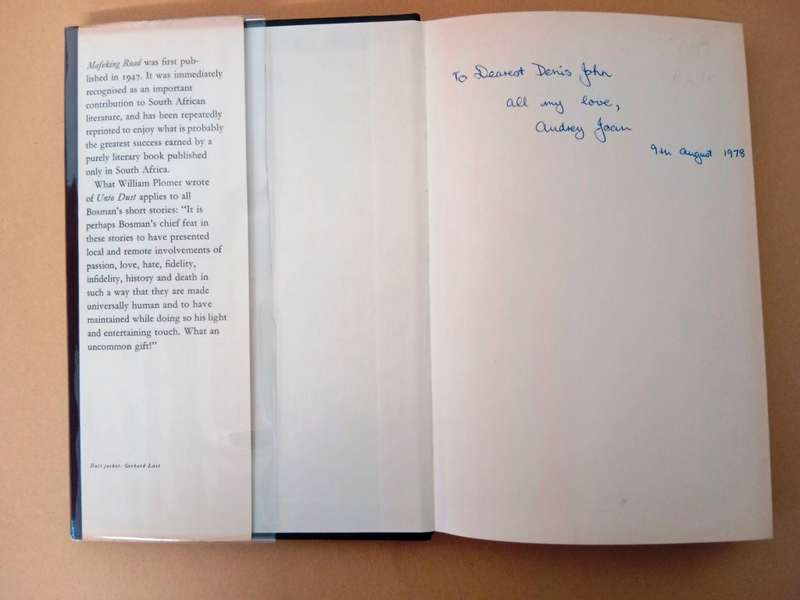 Mafeking Road was first pub-
lished in 1947. It was immediately
recognised as an important
contribution to South African
literature, and has been repeatedly
reprinted to enjoy what is probably
the greatest success earned by a
purely literary book published
only in South Africa.
What William Plomer wrote
of Unto Dust applies to all
Bosman's short stories: “It is
perhaps Bosman's chief feat in
these stories to have presented
local and remote involvements of
passion, love, hate, fidelity,
infidelity, history and death in
such a way that they are made
universally human and to have
maintained while doing so his light
and entertaining touch. What an
uncommon gift!”
Dust jacket: Gerhard Last
To Dearest Denis John
all my love,
Audrey Joan
9th August 1978